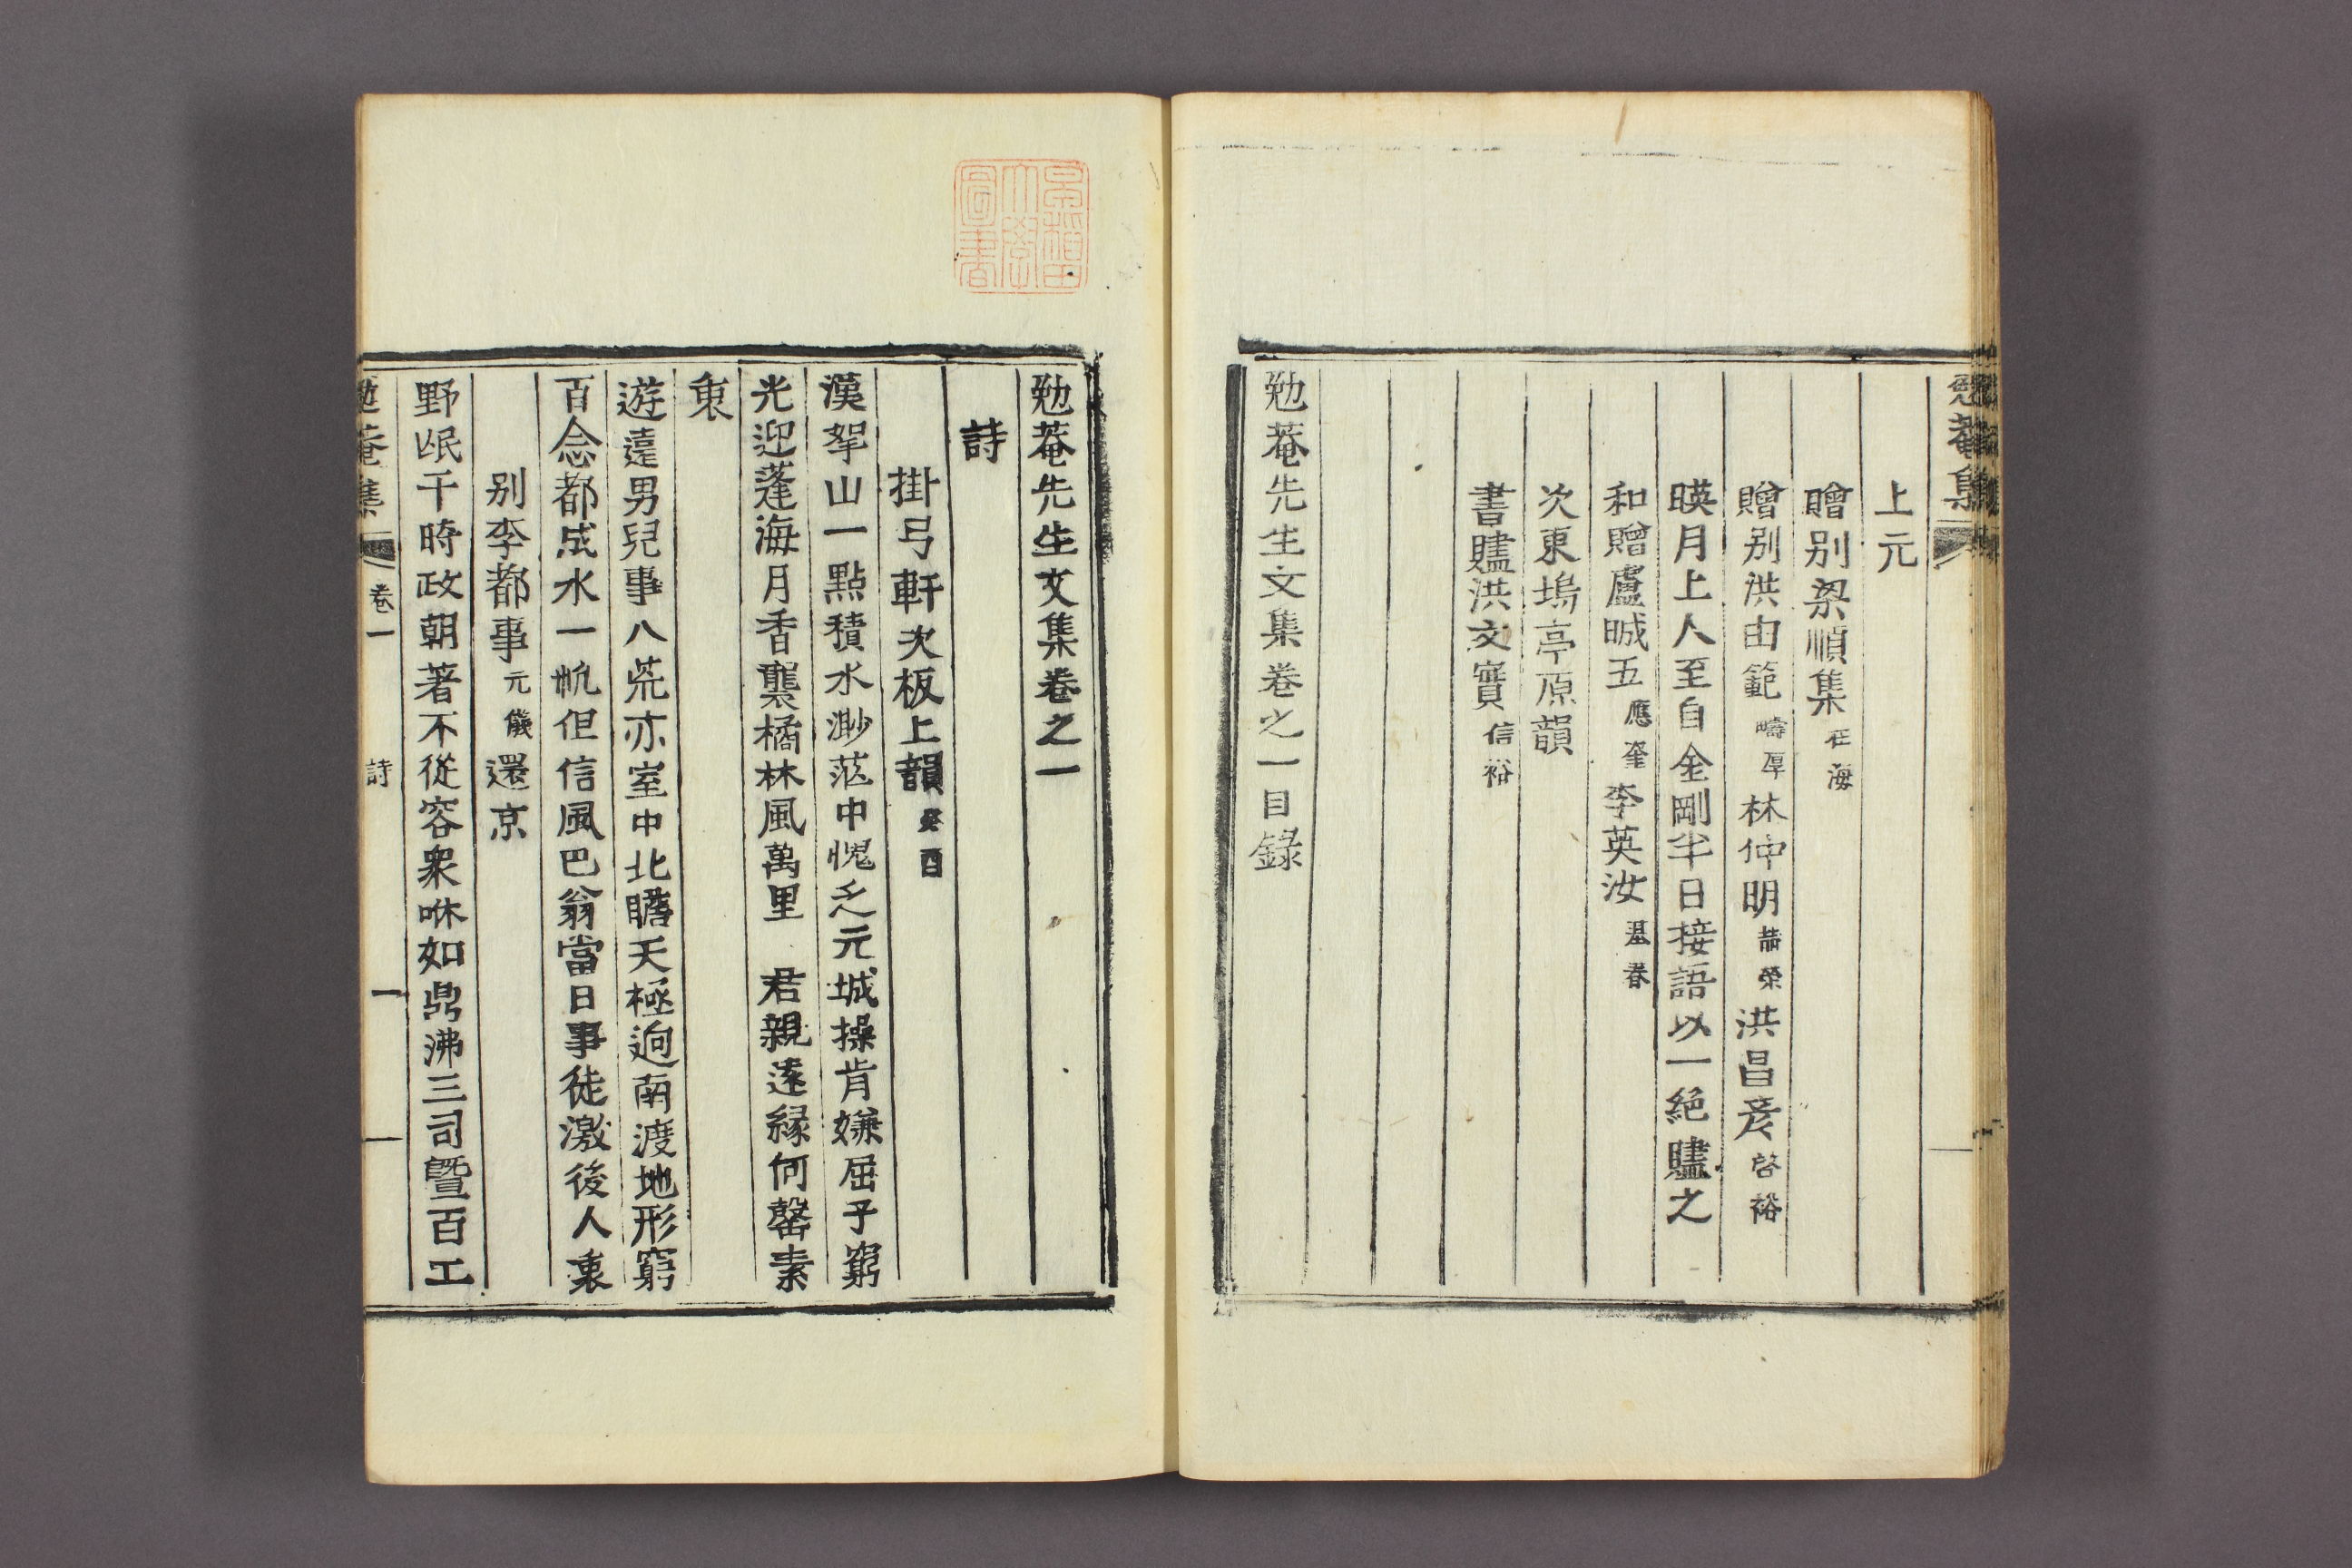 勉菴集
上元
贈別梁順集在海
贈別洪由範疇厚林仲明喆榮洪昌彦啓裕
暎月上人至自金剛半日接語以一絶贐之
和贈盧晠五應奎李英汝基春
次東塢亭原韻
書贐洪文實信裕
勉菴先生文集卷之一目錄
勉菴先生文集卷之一
詩
掛弓軒次板上韻癸酉
漢拏山一點積水渺茫中愧乏元城操肯嫌屈子窮
光迎蓬海月香襲橘林風萬里 君親遠緣何罄素
衷
遊遠男兒事八荒亦室中北瞻天極逈南渡地形窮
百念都成水一帆但信風巴翁當日事徒激後人衷
別李都事元儀還京
野氓干時政朝著不從容衆咻如鼎沸三司曁百工
勉菴集 卷一 詩 一